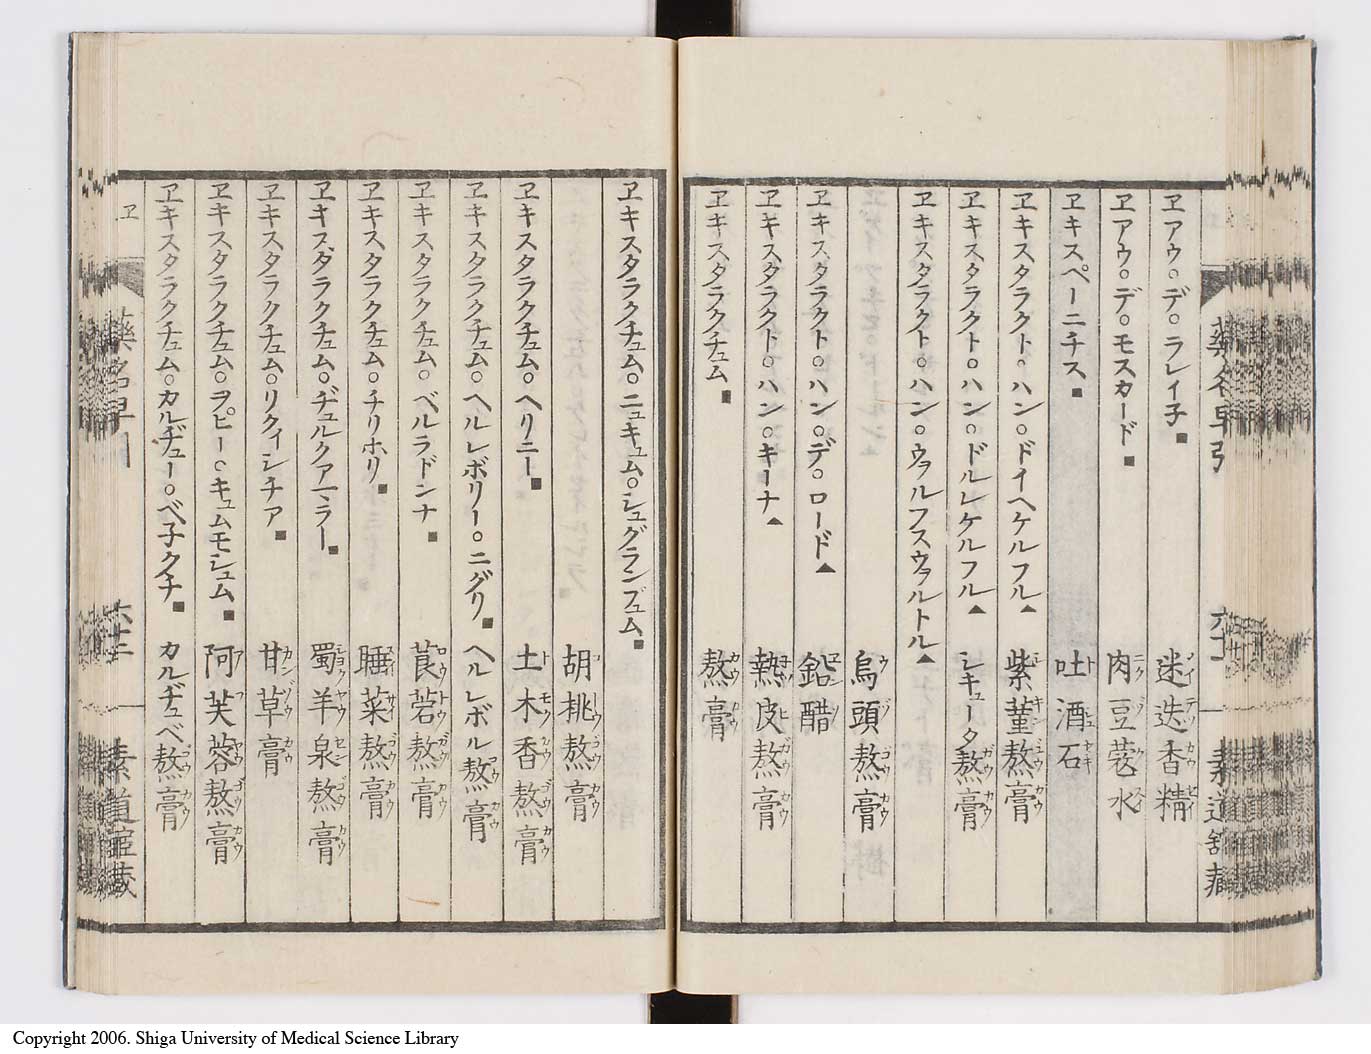 ヱアウ。デ。ラレイ子■ 迷迭香精
ヱアウ。デ。モスカード■ 肉豆蔲水
ヱキスペーニチス■ 吐酒石
ヱキスタラクト。ハン。ドイヘケルフル▲ 紫菫熬膏
ヱキスタラクト。ハン。ドルレケルフル▲ シキュータ熬膏
ヱキスタラクト。ハン。ウァルフスウァルトル▲
烏頭熬膏
ヱキスタラクト。ハン。デ。ロード▲ 鉛醋
ヱキスタラクト。ハン。キーナ▲ 熱皮熬膏
ヱキスタラクチュム■ 熬膏
ヱキスタラクチュム。ニュキュム。シュグランヅュム■
胡桃熬膏
ヱキスタラクチュム。ヘリニー■ 土木香熬膏
ヱキスタラクチュム。ヘルレボリー。ニグリ■ ヘルレボル熬膏
ヱキスタラクチュム。ベルラドンナ■ 莨菪熬膏
ヱキスタラクチュム。チリホリ■ 睡菜熬膏
ヱキスタラクチュム。ヂュルクアーラー■ 蜀羊泉熬膏
ヱキスタラクチュム。リクィシチア■ 甘草膏
ヱキスタラクチュム。ヲピー。キュムモシュム■ 阿芙蓉熬膏
ヱキスタラクチュム。カルヂュー。ベ子クチ■ カルヂュベ熬膏
ヱ
Copyright 2006. Shiga University of Medical Science Library